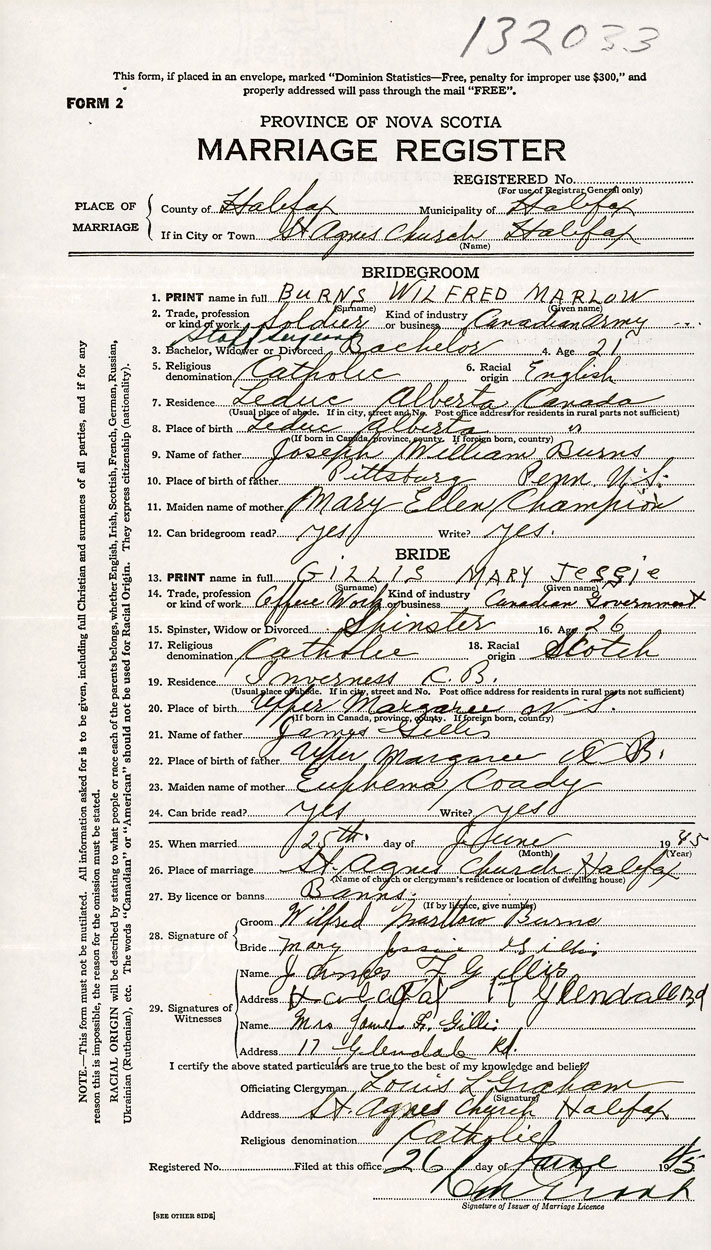 132033
This form, if placed in an envelope, marked "Dominion Statistics—Free, penalty for improper use $300," and
properly addressed will pass through the mail "FREE".
FORM 2
PROVINCE OF NOVA SCOTIA
MARRIAGE REGISTER
REGISTERED No.
(For use of Registrar General only)
PLACE OF MARRIAGE
County of Halifax Municipality of Halifax
If in City or Town St Agnes Church Halifax
(Name)
BRIDEGROOM
1. PRINT name in full BURNS WILFRED MARLOW
(Surname) (Given name)
2. Trade, profession or kind of work Soldier Kind of industry or business Canadian Army
Staff Sergeant
3. Bachelor, Widower or Divorced Bachelor 4. Age 21
5. Religious denomination Catholic 6. Racial origin English
7. Residence Leduc Alberta Canada
(Usual place of abode. If in city, street and No. Post office address for residents in rural parts not sufficient)
8. Place of birth Leduc Alberta "
(If born in Canada, province, county. If foreign born, country)
9. Name of father Joseph William Burns
10. Place of birth of father Pittsburg Penn. U.S.
11. Maiden name of mother Mary Ellen Champion
12. Can bridegroom read? yes Write? yes.
BRIDE
13. PRINT name in full GILLIS MARY JESSIE
(Surname) (Given name)
14. Trade, profession or kind of work Office Work Kind of industry or business Canadian Government
15. Spinster, Widow or Divorced Spinster 16. Age 26
17. Religious denomination Catholic 18. Racial origin Scotch
19. Residence Inverness C.B.
(Usual place of abode. If in city, street and No. Post office address for residents in rural parts not sufficient)
20. Place of birth Upper Margaree N.S.
(If born in Canada, province, county. If foreign born, country)
21. Name of father James Gillis
22. Place of birth of father Upper Margaree C.B.
23. Maiden name of mother Euphema Coady
24. Can bride read? yes Write? yes
25. When married 25th. day of June 1945
(Month) (Year)
26. Place of marriage St Agnes Church Halifax
(Name of church or clergyman's residence or location of dwelling house)
27. By licence or banns Banns.
(If by licence, give number)
28. Signature of
Groom Wilfred Marlow Burns
Bride Mary Jessie Gillis
29. Signatures of Witnesses
Name James F Gillis
Address Halifax 17 Glendall Rd
Name Mrs James F. Gillis
Address 17 Glendale Rd.
I certify the above stated particulars are true to the best of my knowledge and belief
Officiating Clergyman Louis L Graham
(Signature)
Address St. Agnes Church Halifax
Religious denomination Catholic
Registered No. Filed at this office 26 day of June 1945
Signature of Issuer of Marriage Licence
[SEE OTHER SIDE]
NOTE.—This form must not be mutilated. All information asked for is to be given, including full Christian and surnames of all parties, and if for any
reason this is impossible, the reason for the omission must be stated.
RACIAL ORIGIN will be described by stating to what people or race each of the parents belongs, whether English, Irish, Scottish, French, German, Russian,
Ukrainian (Ruthenian), etc. The words "Canadian" or "American" should not be used for Racial Origin. They express citizenship (nationality).